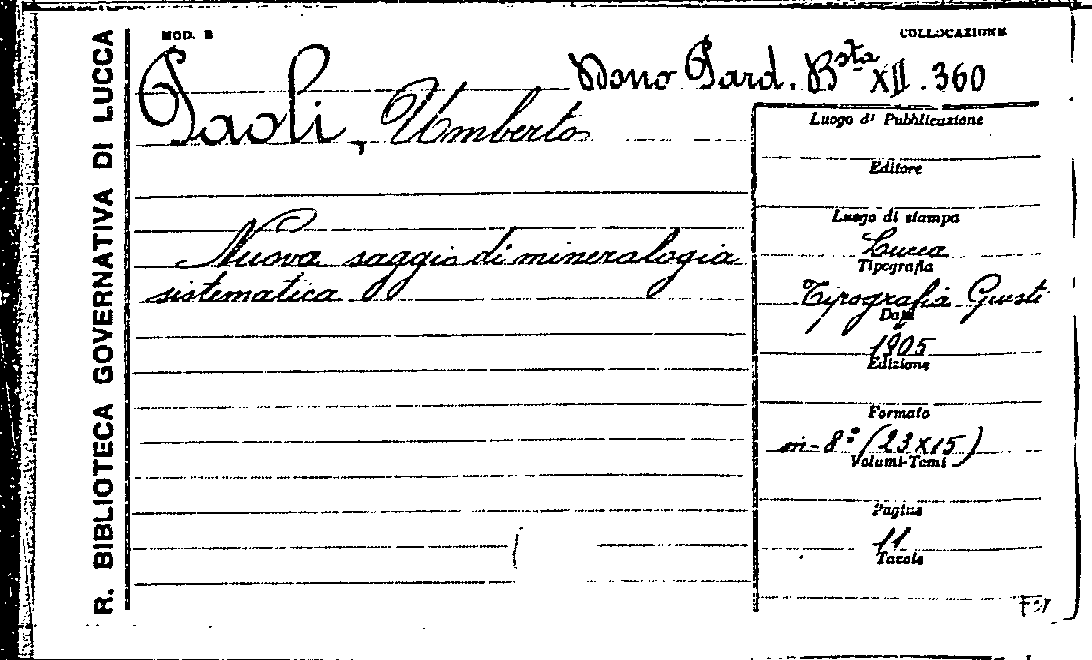 MOD. B
COLLOCAZIONE
Dono Pard. Bsta XII. 360
Paoli, Umberto
R. BIBLIOTECA GOVERNATIVA DI LUCCA
Nuova saggio di mineralogia
sistematica
Luogo di Pubblicazione
Editore
Luogo di stampa
Lucca
Tipografia
Tipografia Giusti
Data
1905
Edizione
Formato
in-8° (23x15)
Volumi-Tomi
Pagine
11
Tavole